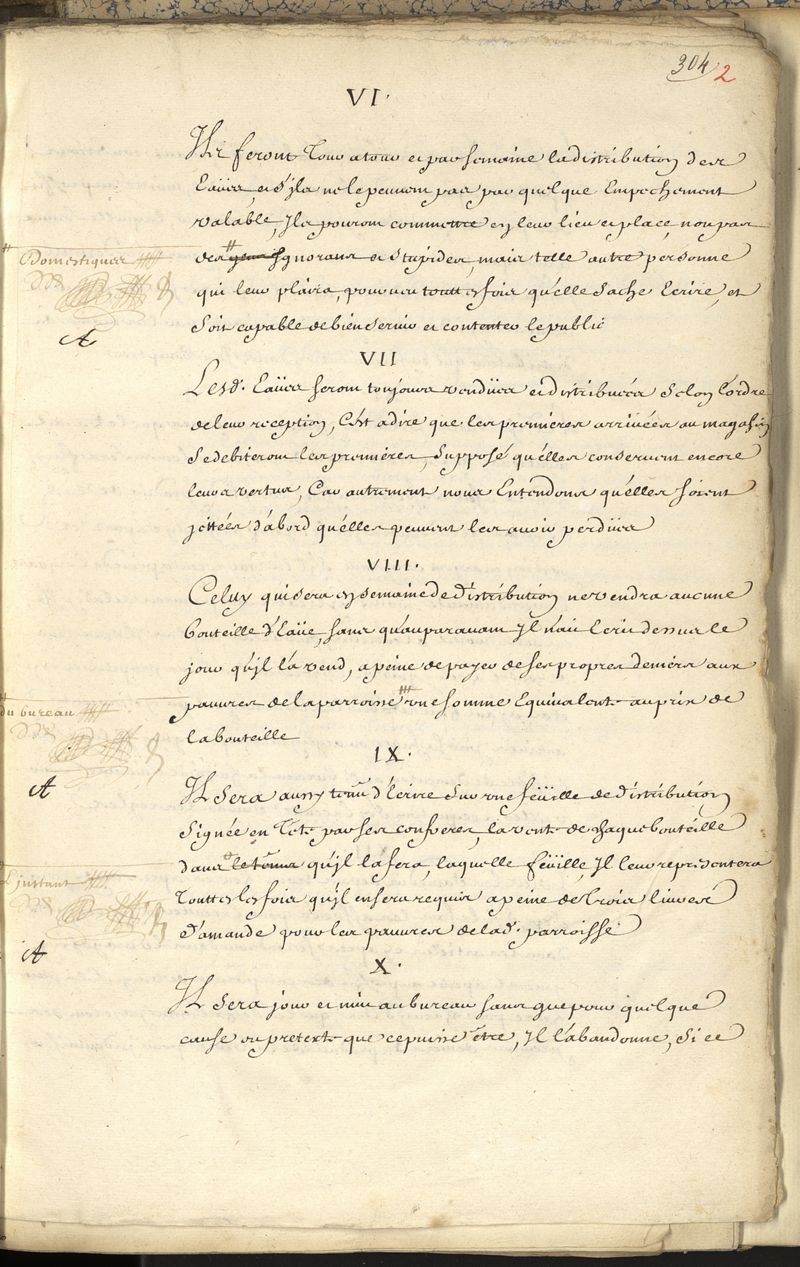 304 2
VI.
Ils feront tour a tour et par semaine la distribution des
Eaües, et s'ils ne le peuvent pas par quelque Empechement
valable, Ils pouront commettre en leur lieu et place, non pas
# Domestiques
des # gens Ignorans et stupides, mais telle autre personne
qui leur plaira, pourveu touttesfois qu'elle sache Ecrire, et
A
soit capable de bien servir et contenter le public
VII
Lesd. Eaües seront toujours vendües et distribuées selon l'ordre
de leur reception, C'est a dire que les premieres arrivées au magasin
se debiteront les premières, supposé qu'elles conservent encore
leurs vertus, Car autrement nous Entendons qu'elles soient
jettées d'abord qu'elles peuvent les avoir perdües
VIII.
Celuy qui sera en semaine de distribution ne vendra aucune
bouteille d'Eaüe, sans qu'auparavant Il n'ait Ecrit dessus le
jour qu'il la vend, a peine de payer de ses propres deniers aux
# du bureau
pauvres de la parroisse # une somme Equivalente au prix de
la bouteille
IX.
A
Il sera aussy tenu d'Ecrire sur une feüille de distribution
signée en tete par ses confreres, la vente de chaque bouteille
# L'instant
dans # le tems qu'il la fera, laquelle feüille, Il leur representera
touttes les fois qu'il en sera requis a peine de trois livres
d'amande pour les pauvres de lad. parroisse
A
X.
Il sera jour et nuit au bureau sans que pour quelque
cause ou pretexte que ce puisse être, Il l'abandonne, si ce